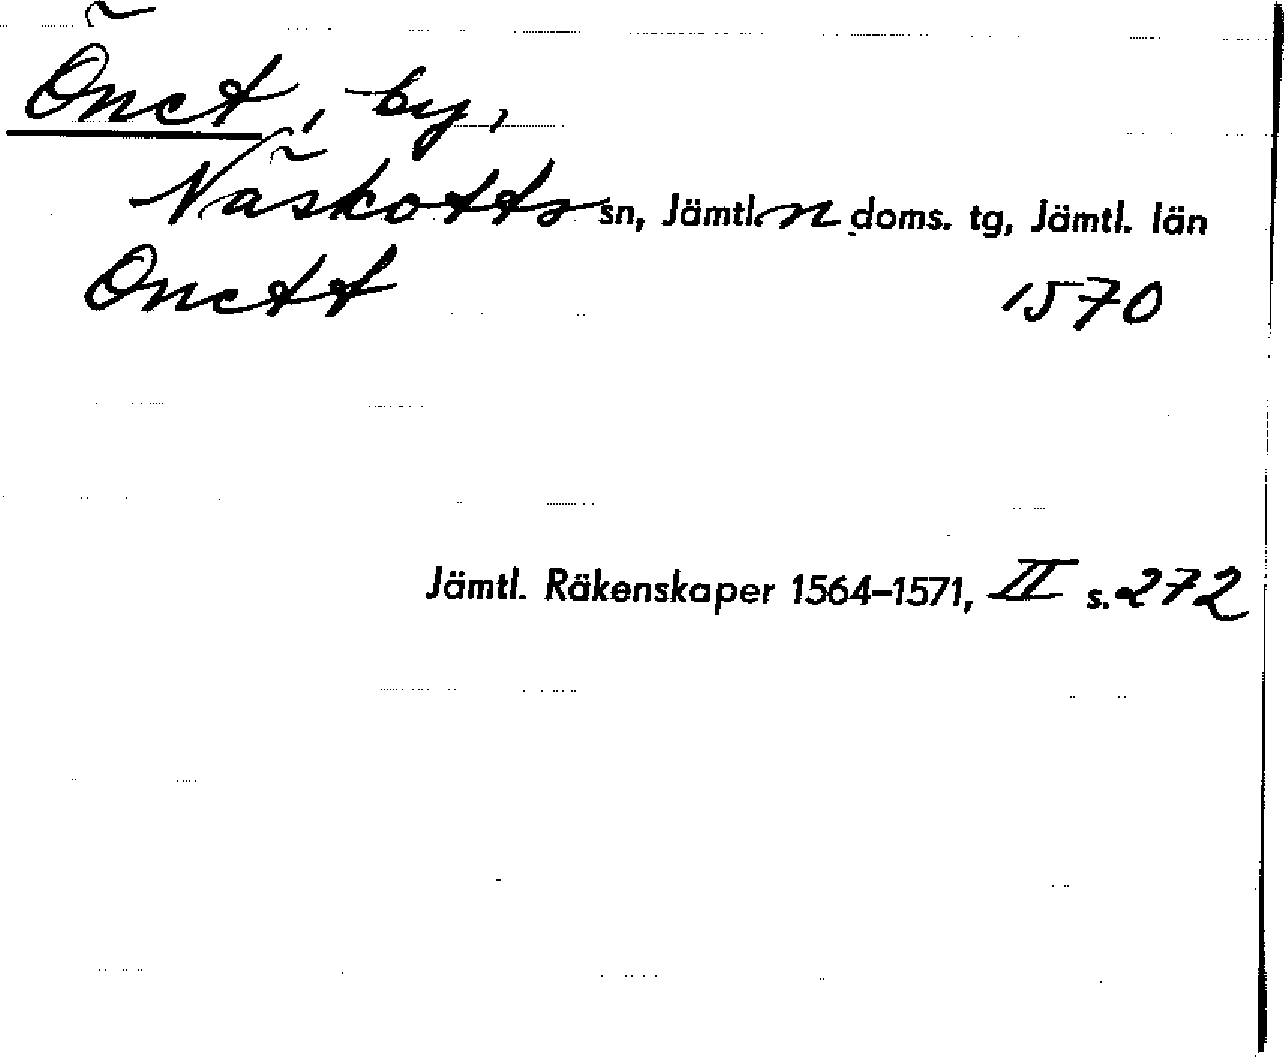 Önet, by,
Näskotts sn, Jämtl. n doms. tg, Jämtl. län
Onett 1570
Jämtl. Räkenskaper 1564–1571, II s. 272